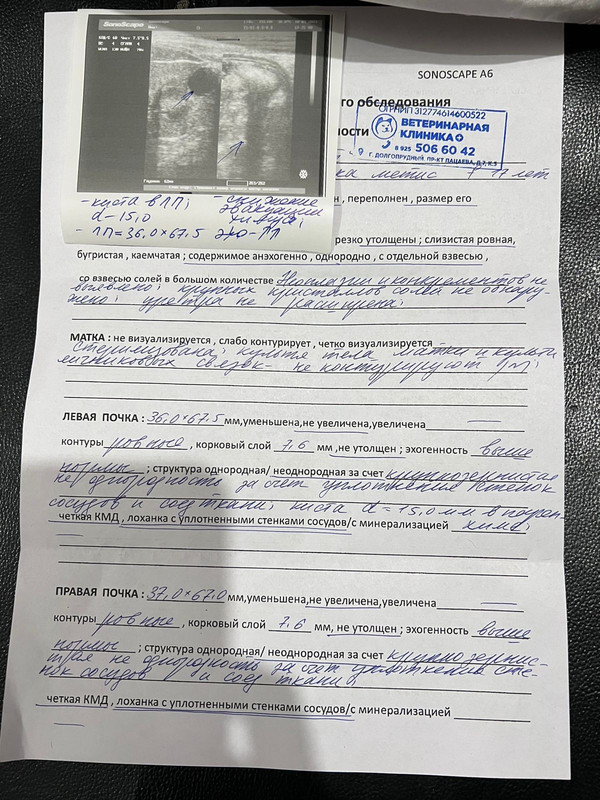 SonoScape
SONOSCAPE A6
го обследования
ОГРНИП 312774614600522
ВЕТЕРИНАРНАЯ
КЛИНИКА
8 925 506 60 42
Г. ДОЛГОПРУДНЫЙ, ПР-КТ ПАЦАЕВА, Д.7, К.5
ности
метис 11 лет
- киста в ЛП;
d - 15,0
- ЛП = 36,0×67,5
- снижение
эвакуации
н , переполнен , размер его
резко утолщены ; слизистая ровная,
бугристая , каемчатая ; содержимое анэхогенно , однородно , с отдельной взвесью ,
со взвесью солей в большом количестве Неоплазии и конкрементов не
выявлено; крупных кристаллов солей не обнару-
жено; уретра не расширена;
МАТКА : не визуализируется , слабо контурирует , четко визуализируется
Стерилизована; культя тела матки и культи
яичниковых связок - не контурируют (N);
ЛЕВАЯ ПОЧКА : 36,0×67,5 мм,уменьшена,не увеличена,увеличена
контуры ровные , корковый слой 7,6 мм ,не утолщен ; эхогенность выше
нормы ; структура однородная/ неоднородная за счет крупнозернистая
неоднородность за счет уплотнения стенок
сосудов и соед ткани; киста d = 15,0 мм в
четкая КМД , лоханка с уплотненными стенками сосудов/с минерализацией
ПРАВАЯ ПОЧКА : 37,0×67,0 мм,уменьшена,не увеличена,увеличена
контуры ровные , корковый слой 7,6 мм, не утолщен ; эхогенность выше
нормы ; структура однородная/ неоднородная за счет крупнозернис-
тая неоднородность за счет уплотнения сте-
нок сосудов и соед ткани;
четкая КМД , лоханка с уплотненными стенками сосудов/с минерализацией